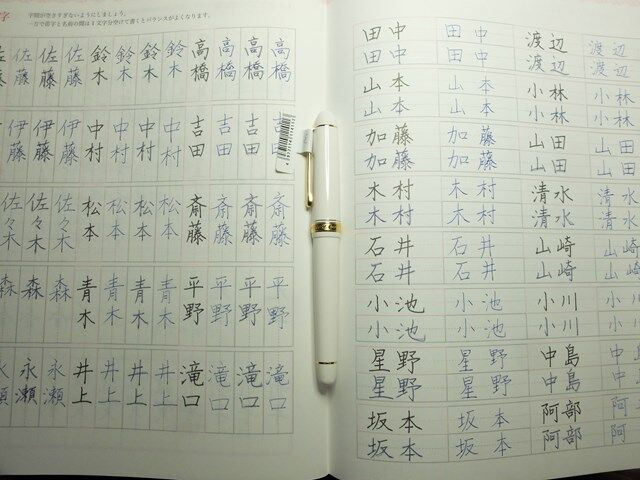 字
字間が空きすぎないようにしましょう。
一方で苗字と名前の間は1文字分空けて書くとバランスがよくなります。
高橋 高橋 高橋 高橋 鈴木 鈴木 鈴木 鈴木 佐藤 佐藤 佐藤
吉田 吉田 吉田 吉田 中村 中村 中村 中村 伊藤 伊藤 伊藤
斎藤 斎藤 斎藤 斎藤 松本 松本 松本 松本 佐々木 佐々木 佐々木
平野 平野 平野 平野 青木 青木 青木 青木 森 森 森
滝口 滝口 滝口 滝口 井上 井上 井上 井上 永瀬 永瀬
田中 田中 渡辺 渡辺
田中 田中 渡辺 渡辺
山本 山本 小林 小林
山本 山本 小林 小林
加藤 加藤 山田 山田
加藤 加藤 山田 山田
木村 木村 清水 清水
木村 木村 清水 清水
石井 石井 山崎 山崎
石井 石井 山崎 山崎
小池 小池 小川 小川
小池 小池 小川 小川
星野 星野 中島 中島
星野 星野 中島 中島
坂本 坂本 阿部 阿部
坂本 坂本 阿部 阿